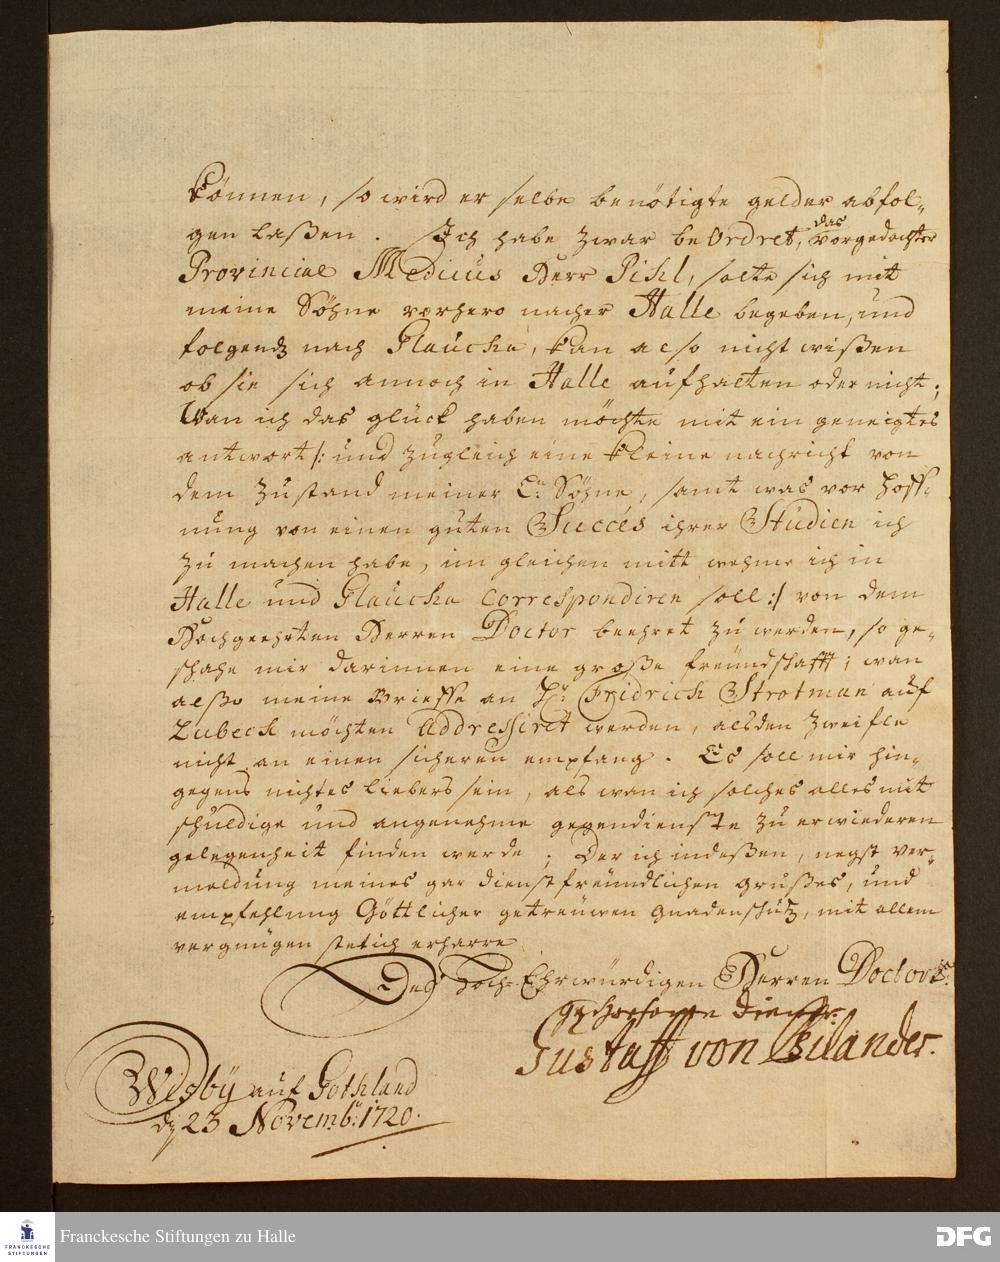 können, so wird er selbe benötigte gelder abfol-
gen laßen. Ich habe zwar beOrdret, das vorgedachter
Provincial Medicus Herr Pihl, solte sich mit
meine Söhne vorhero nacher Halle begeben, und
folgends nach Glaucha, kan also nicht wißen
ob sie sich annoch in Halle aufhalten oder nicht;
Wan ich das glück haben möchte mit ein geneigtes
antwort /: und zugleich eine kleine nachricht von
dem Zustand meiner L: Söhne, samt was vor Hoff-
nung von einen guten Succés ihrer Studien ich
zu machen habe, im gleichen mitt wehme ich in
Halle und Glaucha Correspondiren soll :/ von dem
Hochgeehrten Herren Doctor beehret zu werden, so ge-
schahe mir darinnen eine große freundschafft; wan
alßo meine Brieffe an H: Fridrich Strotman auf
Lubeck möchten addressiret werden, alsden zweifle
nicht an einen sicheren empfang. Es soll mir hin-
gegens nichtes liebers sein, als wan ich solches alles mit
schuldige und angenehme gegendienste zu erwiederen
gelegenheit finden werde; Der ich indeßen, negst ver-
meldung meines gar dienstfreundlichen grußes, und
empfehlung Göttlicher getreuwen gnadenschutz, mit allem
vergnügen stetich erharre
Des Hoch-Ehrwürdigen Herren Doctoris
gehorsamer diener
Gustaff von Psilander.
Wisbÿ auf Gothland
d. 23 Novemb: 1720.
Franckesche Stiftungen zu Halle
FRANCKESCHE
STIFTUNGEN
DFG